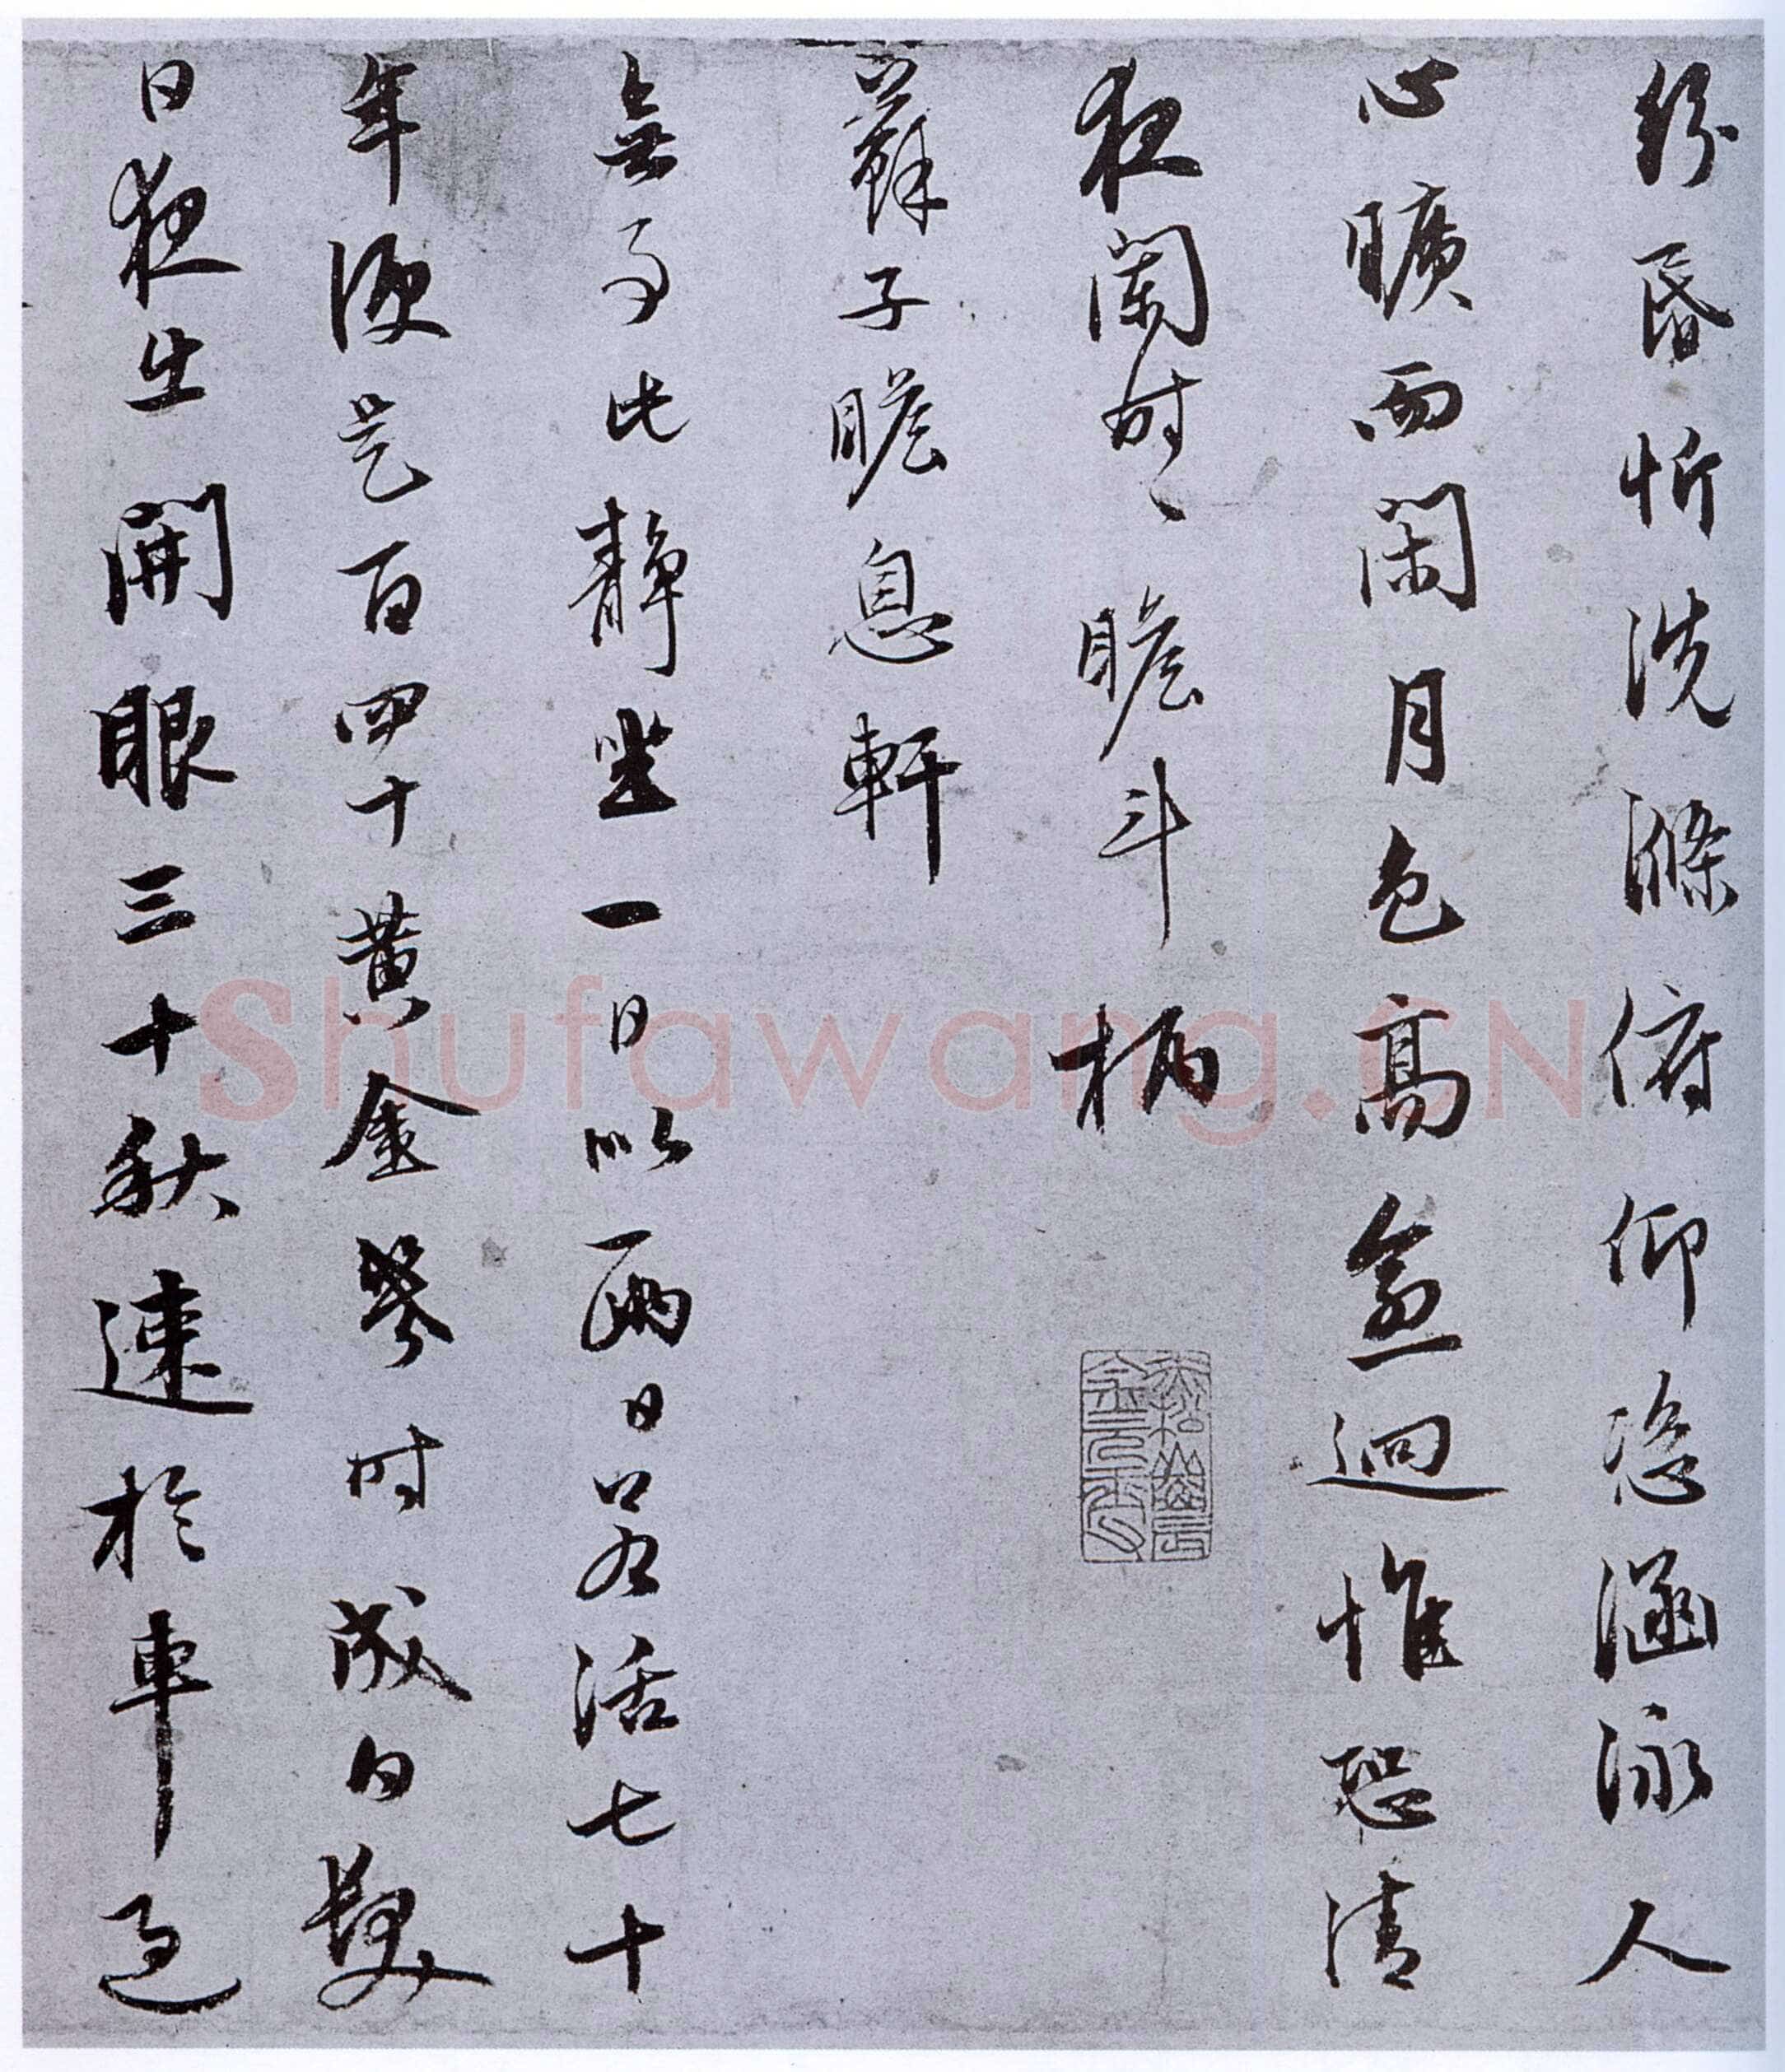 紛昏忻洗滌俯仰恣涵泳人
心曠而閑月色高愈迥惟恐清
夜闌時〻瞻斗柄
蘇子瞻息軒
無事此靜坐一日似兩日若活七十
年便是百四十黃金幾時成白髮
日夜生開眼三十秋速於車過
Shufawang.CN